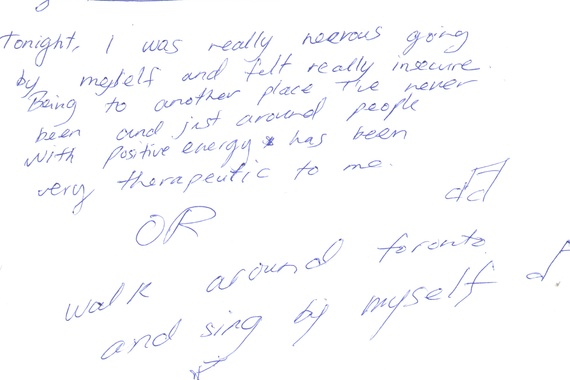 Tonight, I was really neervous going
by myself and felt really insecure.
Being to another place I've never
been and just around people
with positive energy has been
very therapeutic to me.
OR
walk around toronto
and sing by myself